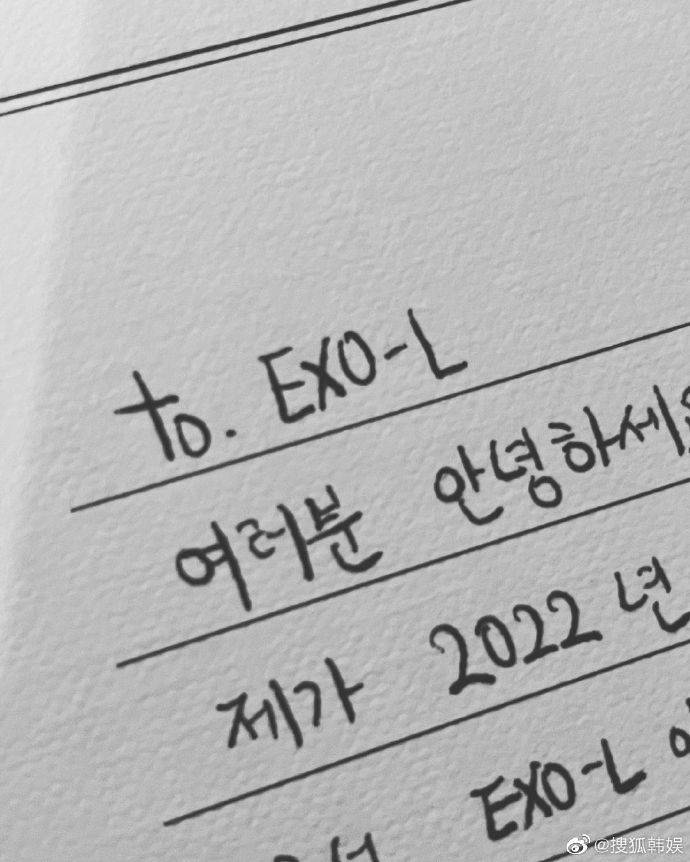 to. EXO-L
여러분 안녕하세
제가 2022년
EXO-L
@搜狐韩娱